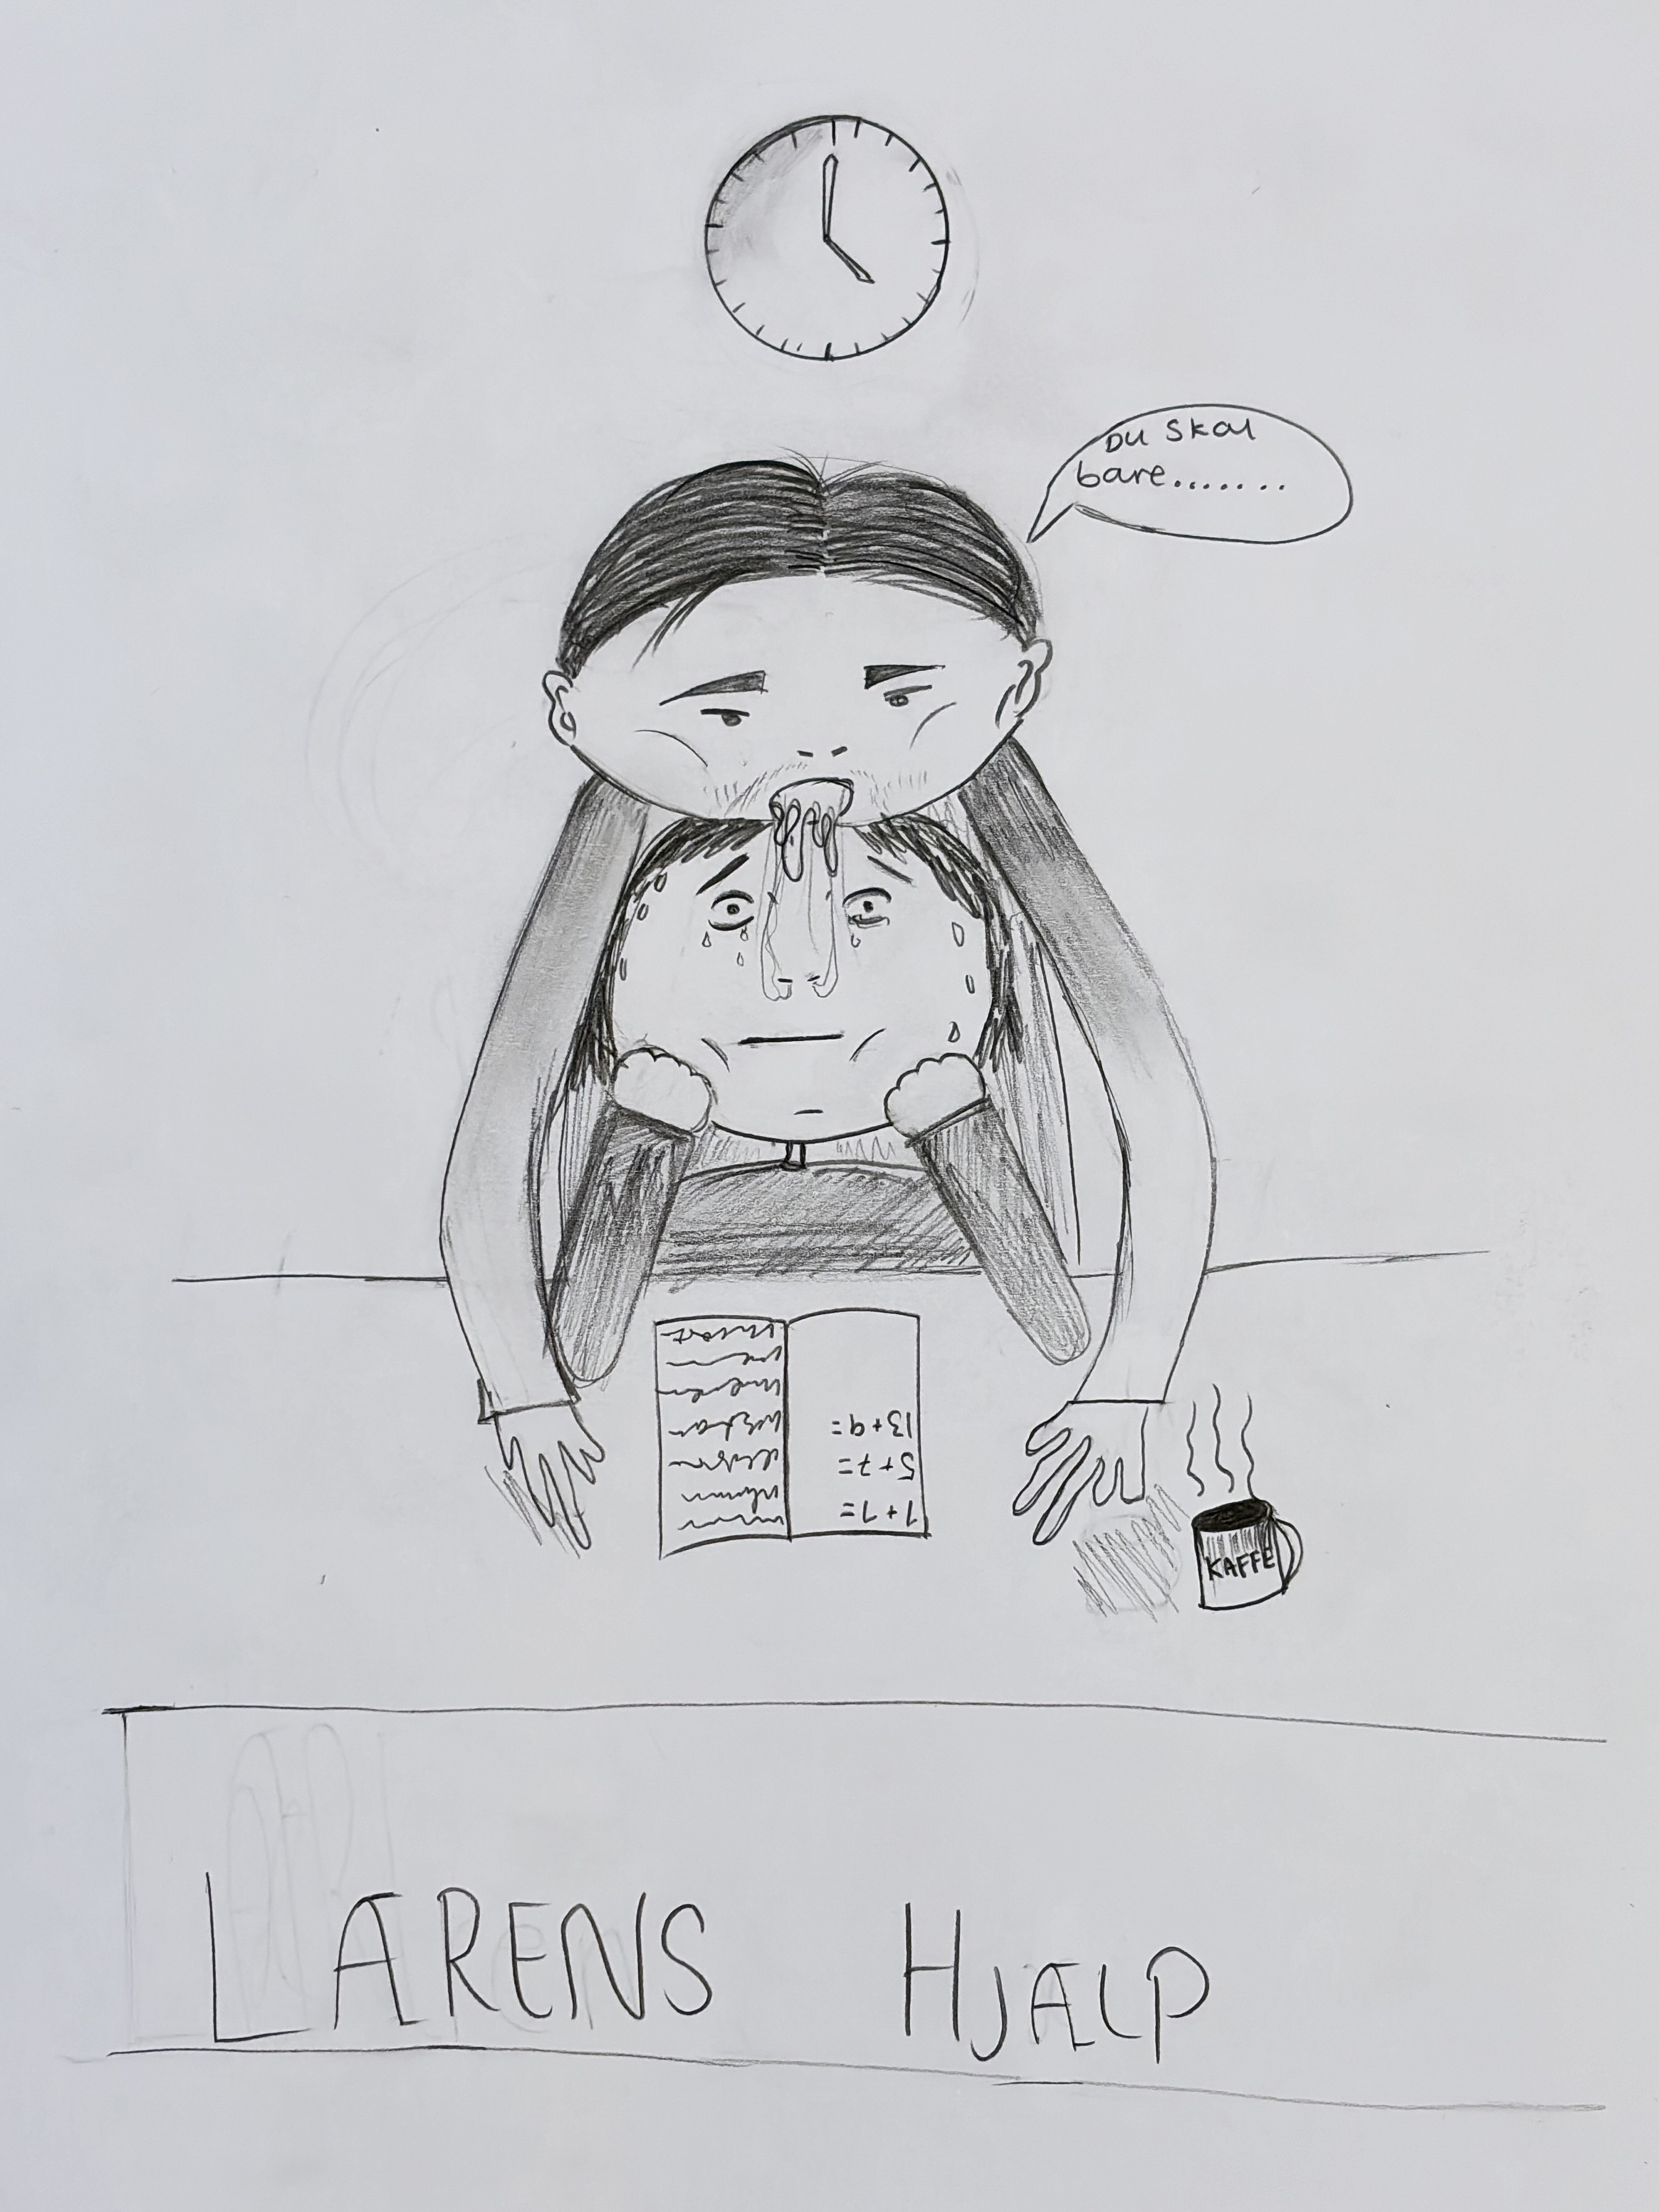 Du skal
bare.......
13+9=
5+7=
1+1=
KAFFE
LÆRENS HJÆLP